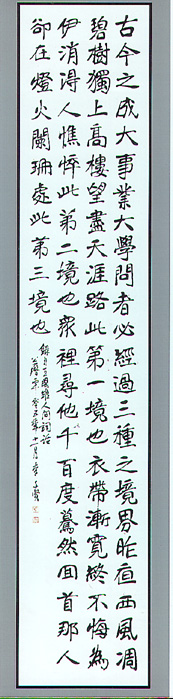 古今之成大事業大學問者必經過三種之境界昨夜西風凋
碧樹獨上高樓望盡天涯路此第一境也衣帶漸寬終不悔為
伊消得人憔悴此第二境也眾裡尋他千百度驀然回首那人
卻在燈火闌珊處此第三境也
錄自王國維人間詞話
十一月